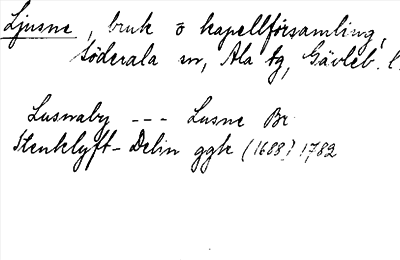 Ljusne, bruk o kapellförsamling,
Söderala sn, Ala tg, Gävleb. l.
Lusnaby --- Lusne Br
Stenklyft-Delin ggk (1688?) 1782